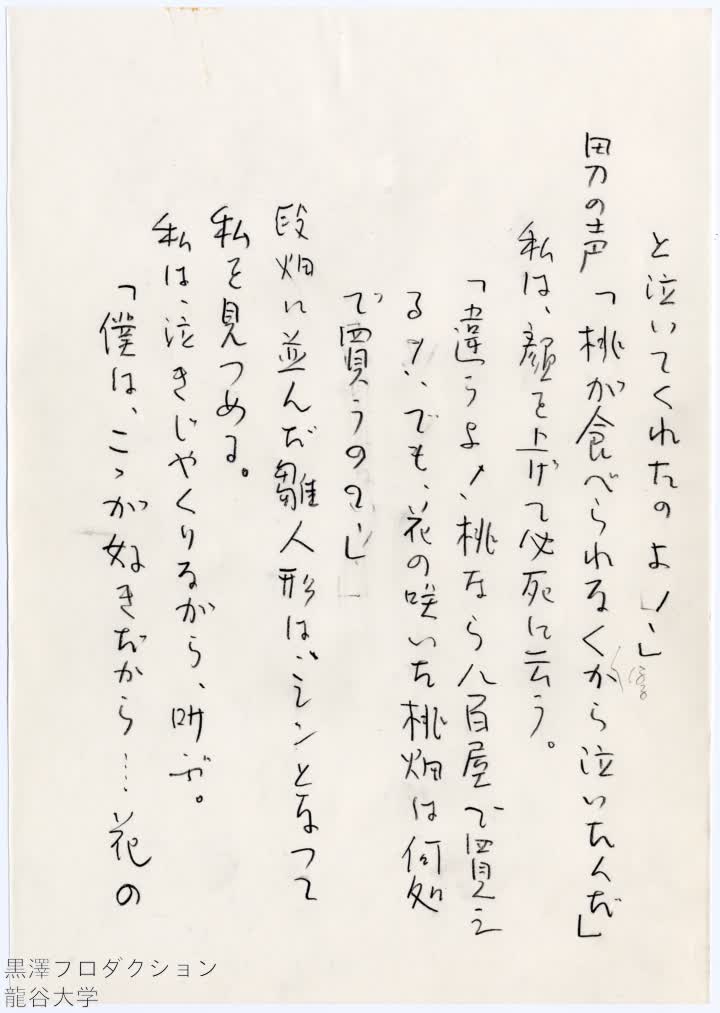 と泣いてくれたのよ！」
男の声「桃が食べられなくから泣いたんだ」
私は、顔を上げて必死に云う。
「違うよ！桃なら八百屋で買え
る！でも、花の咲いた桃畑は何処
で買うの？」
段畑に並んだ雛人形は、シンとなって
私を見つめる。
私は、泣きじゃくりながら、叫ぶ。
「僕は、こゝが好きだから……花の
黒澤プロダクション
龍谷大学